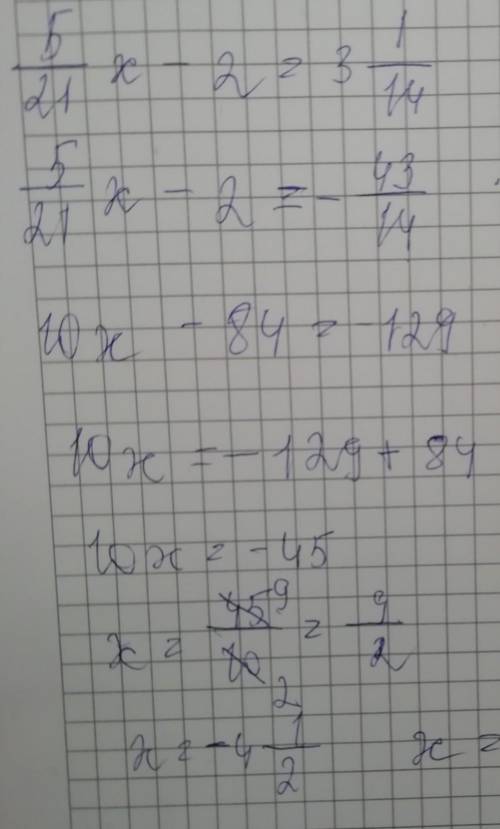 5/21 x - 2 = 3 1/14
5/21 x - 2 = - 43/14
10x - 84 = -129
10x = -129 + 84
10x = -45
x = 45 9/10 2 = 9/2
x = -4 1/2 x =